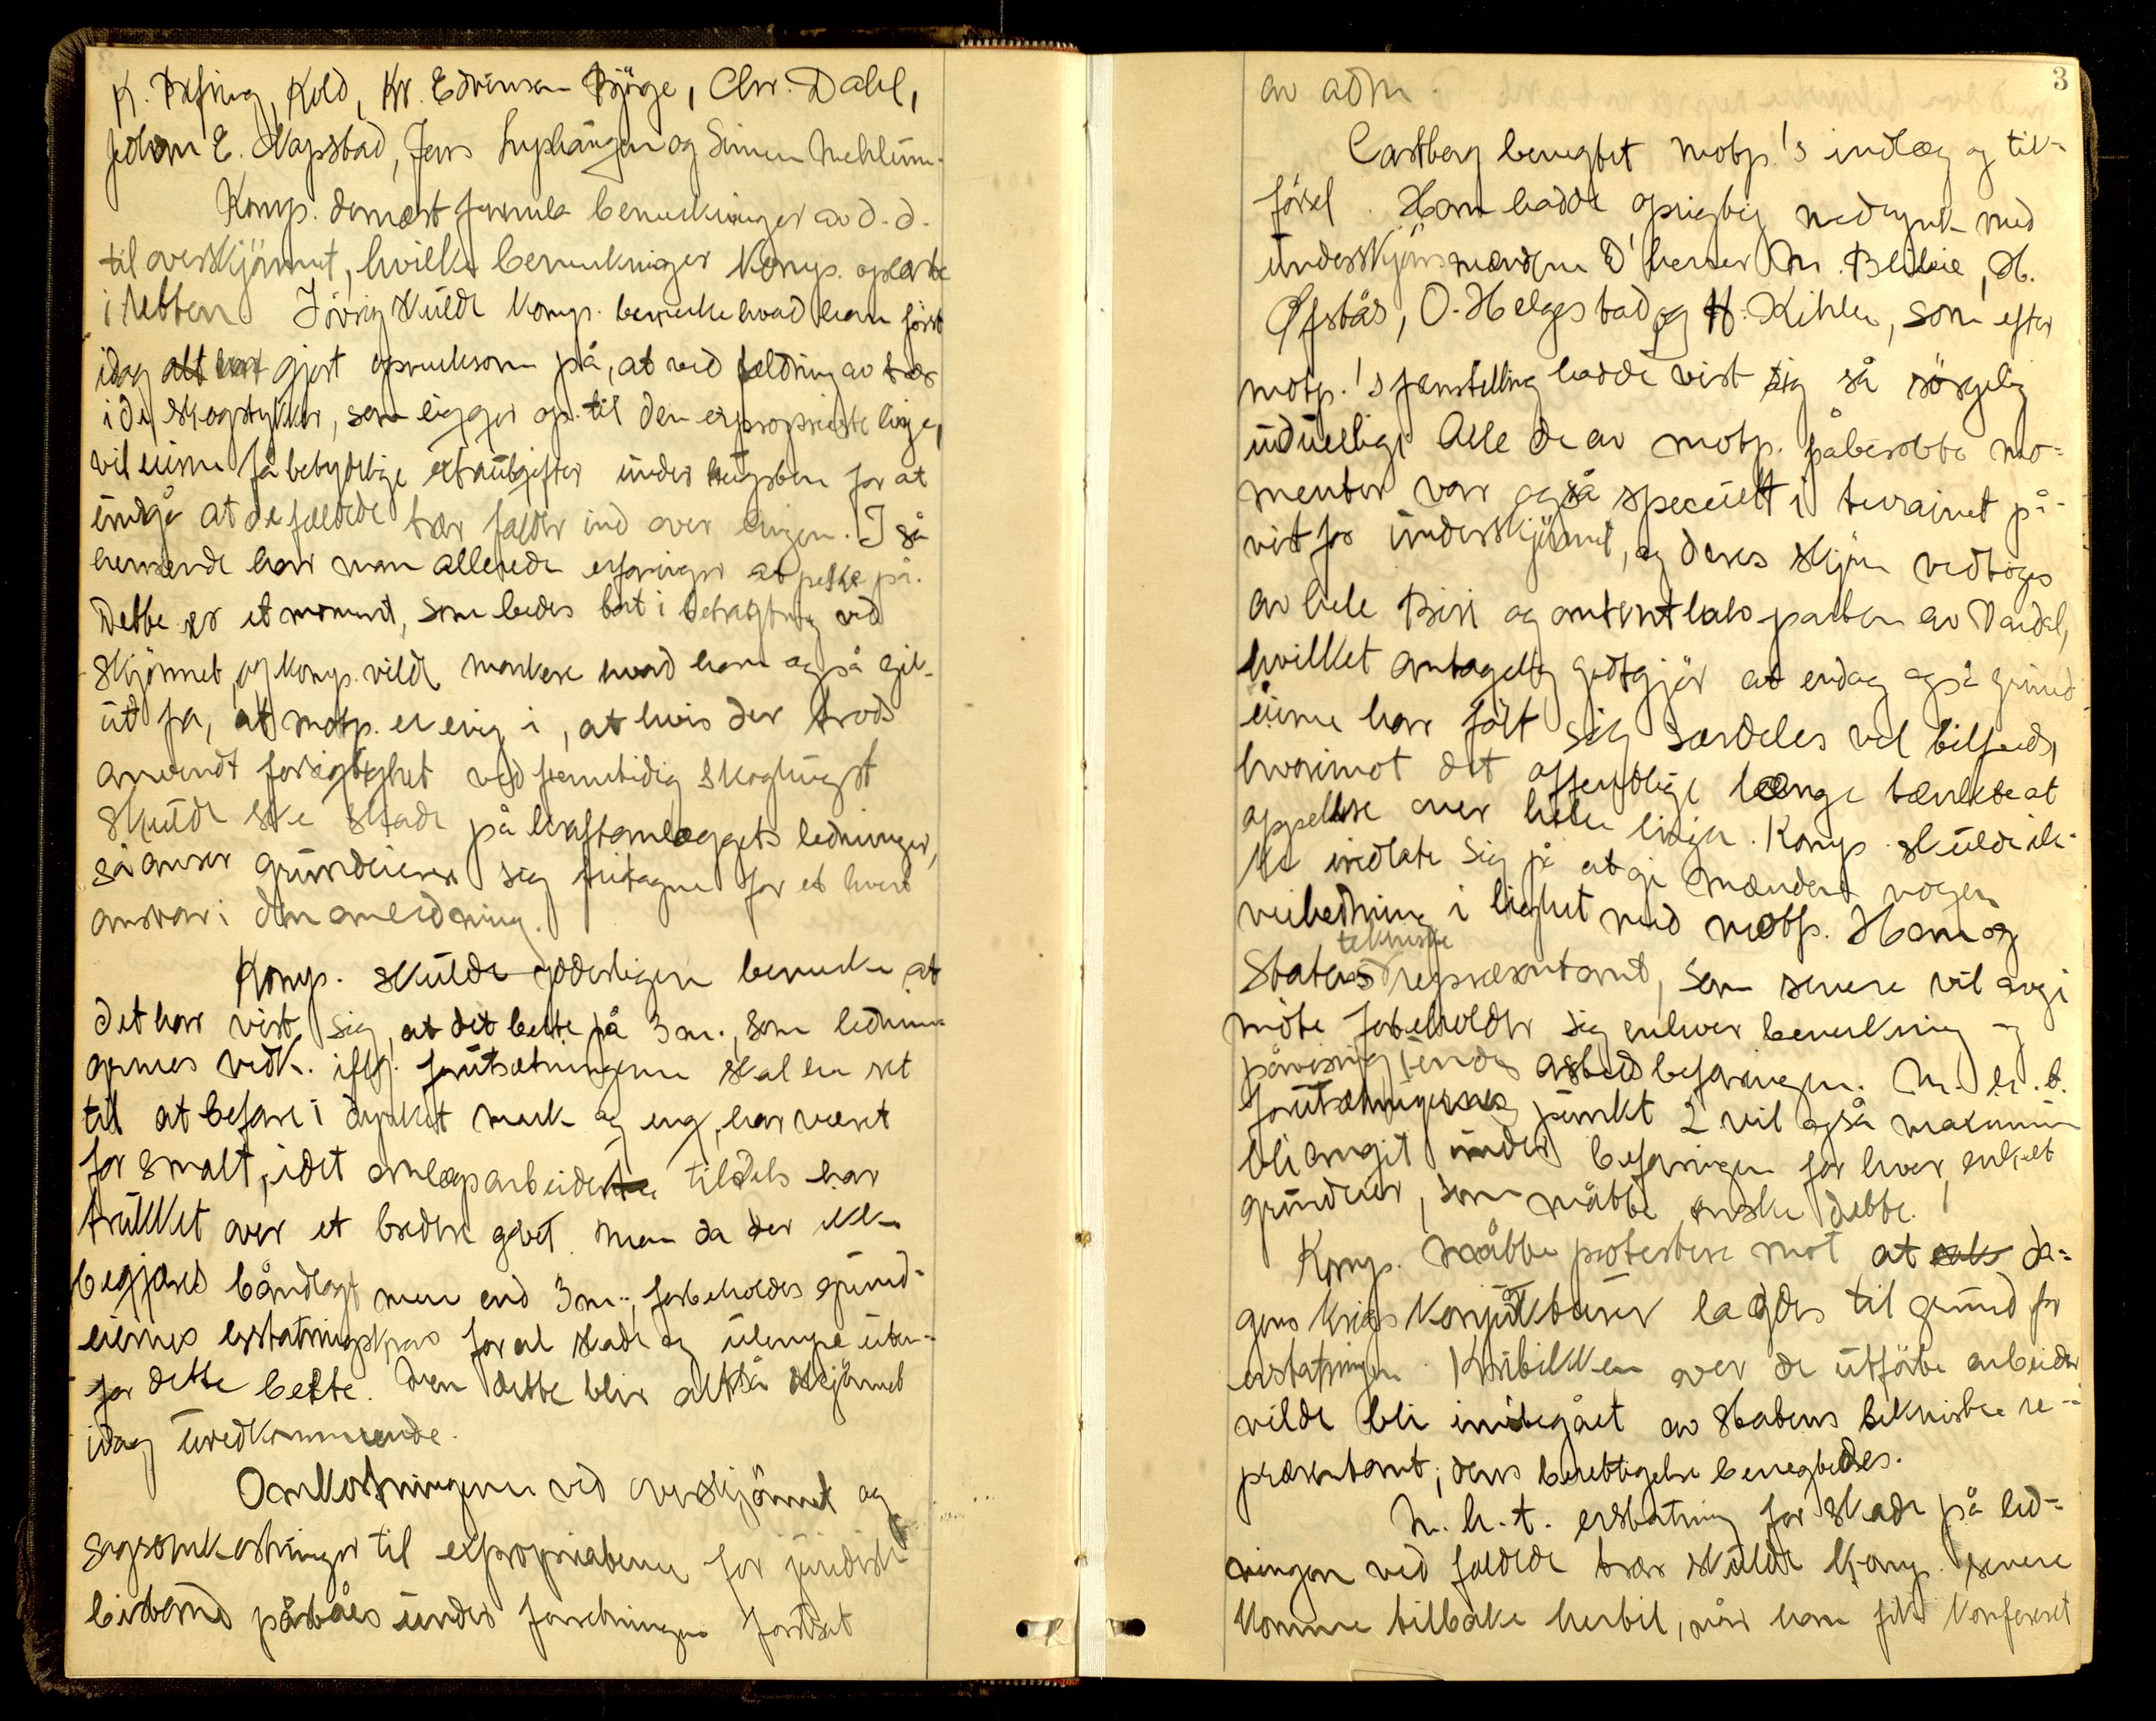 K. Kold, Kr. Edvinsen Bjöge, Chr. Dahl,
Johan E. Napstad, Jens og Simen Mehlum.
Komp. dernæst bemerkninger av d.d.
til overskjönnet, hvilke bemerkninger Komp. oplæste
i retten. Jövrig skulde Komp. bemerke hvad han först
idag gjort opmerksom på, at ved fældning av trær
i de skogstykker, som ligger op til den exproprierte linje,
vil eierne få betydelige extrautgifter under hugsten for at
undgå at de fældede trær falder ind over linjen. I så
henseende har man allerede erfaringer at peke på.
Dette er et moment, som bedes tat i betragtning ved
skjönnet, og Komp. vilde markere hvad han også gik
ut fra, at motp. er enig i, at hvis der trods
anvendt forsigtighet ved fremtidig skoghugst
skulde ske skade på kraftanlæggets ledninger,
så anser grundeierne sig fritagne for et hvert
ansvar i den anledning.
Komp. skulde yderligere bemerke at
det har vist sig, at det belte på 3 m., som lednin-
gernes vedk. iflg. forutsætningerne skal ha ret
til at befare i dyrket mark og eng, har været
for smalt, idet anlægsarbeiderne tildels har
trukket over et bredere gebet. Men da der ikke
begjæres båndlagt mere end 3 m., forbeholdes grund-
eiernes erstatningskrav for al skade og ulempe uten-
for dette belte. Men dette blir altså skjönnet
idag uvedkommende.
Omkostningerne ved overskjönnet og
sagsomkostninger til expropriaterne for juridisk
bistand påståes under forretningen fastsat
3
av adm.
Castberg benegtet motp.'s indlæg og til-
försel. Han hadde oprigtig medynk med
underskjönsmændene D'herrer M. Blilie, H.
Öfstås, O. Helgestad og H. Kihle, som efter
motp.'s fremstilling hadde vist sig så sörgelig
uduelige. Alle de av motp. påberobte mo-
menter var også specielt i terrainet på-
vist for underskjönnet, og deres skjön vedtoges
av hele Biri og parten av Vardal,
hvilket antagelig godtgjör at endog også grund-
eierne har fölt sig særdeles vel tilfreds,
hvorimot det offentlige længe tænkte at
appellere over hele linjen. Komp. skulde ik-
ke indlate sig på at gi mændene nogen
veiledning i lighet med motp. Han og
Statens tekniske repræsentant, som senere vil avgi
möte forbeholder sig enhver bemerkning og
påvisning under åstedsbefaringen. M. h. t.
forutsætningernes punkt 2 vil også maximum
bli angit under befaringen for hver enkelt
grundeier, som måtte önske dette.
Komp. måtte protestere mot at da-
gens krigskonjukturer lagdes til grund for
erstatningen. Kritikken over de utförte arbeider
vilde bli imötegået av Statens tekniske re-
præsentant; dens berettigelse benegtedes.
M. h. t. erstatning for skade på led-
ningen ved fældede trær skulde Komp. senere
komme tilbake hertil, når han fik konferert